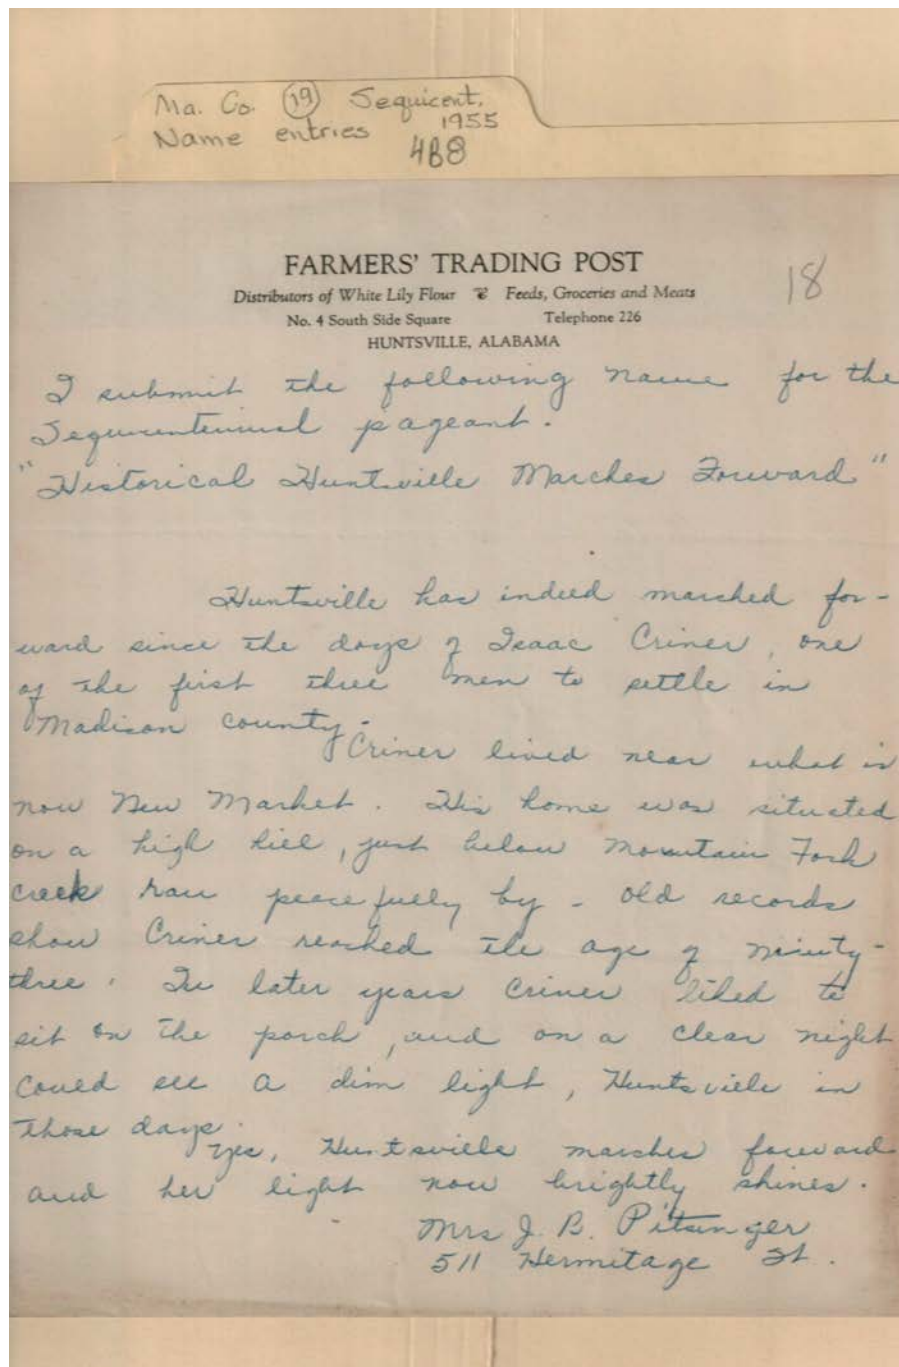 Ma. Co. 19 Sequicent.
1955
Name entries
4B8
FARMERS' TRADING POST
18
Distributors of White Lily Flour Feeds, Groceries and Meats
No. 4 South Side Square Telephone 226
HUNTSVILLE, ALABAMA
I submit the following name for the
Sequicentennial pageant.
"Historical Huntsville Marches Forward"
Huntsville has indeed marched for-
ward since the days of Isaac Criner, one
of the first three men to settle in
Madison county.
Criner lived near what is
now New Market. His home was situated
on a high hill, just below Mountain Fork
creek ran peacefully by - old records
show Criner reached the age of ninety-
three. In later years Criner liked to
sit on the porch, and on a clear night
could see a dim light, Huntsville in
those days.
Yes, Huntsville marches forward
and her light now brightly shines.
Mrs J. B. Pitsinger
511 Hermitage St.